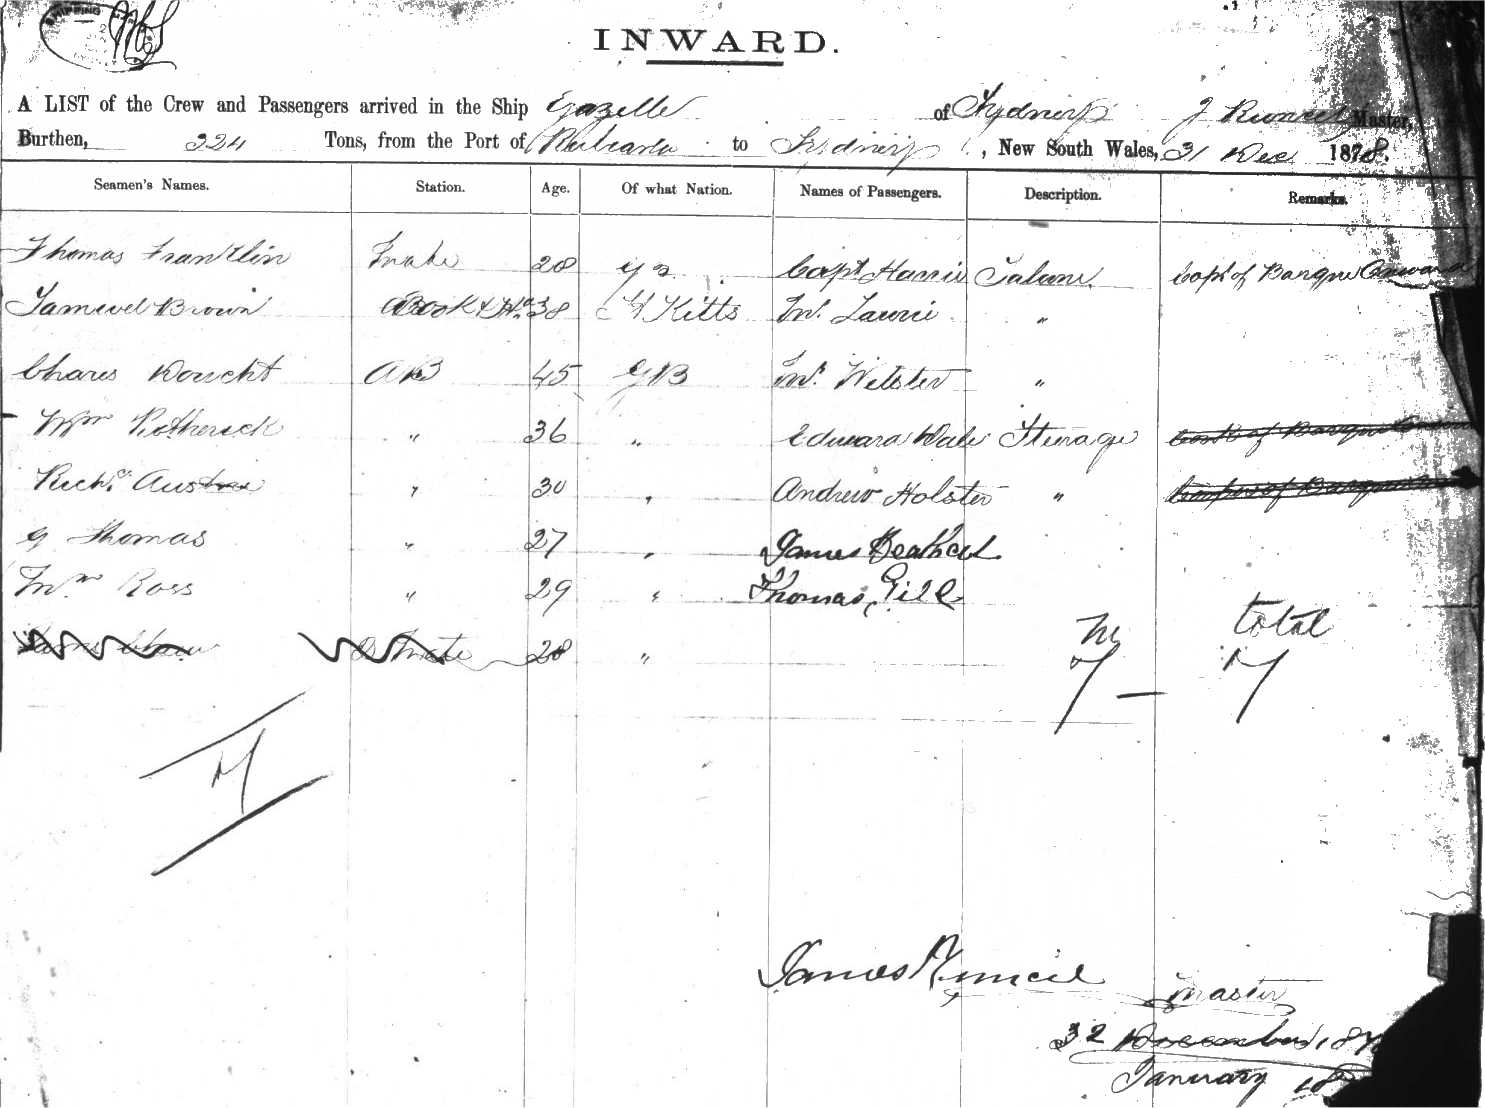 SHIPPING
INWARD.
A LIST of the Crew and Passengers arrived in the Ship Gazelle of Sydney J Runciel Master,
Burthen, 324 Tons, from the Port of to Sydney, New South Wales, 31 Dec 1878.
Seamen's Names. Station. Age. Of what Nation. Names of Passengers. Description. Remarks.
Thomas Franklin Mate 28 Capt Harris Saloon Capt of Barque
Samuel Brown Cook & 38 St Kitts Mr. Lawrie "
Chares 45 GB Mr. Webster "
Wm Rotherick " 36 " Edward Dale Steerage
Richd. " 30 " Andrew Holster "
G Thomas " 27 " James
Wm Ross " 29 " Thomas Gill
Mate 28 " 7 — total 7
7
James Runciel
Master
32 December 187
January 18